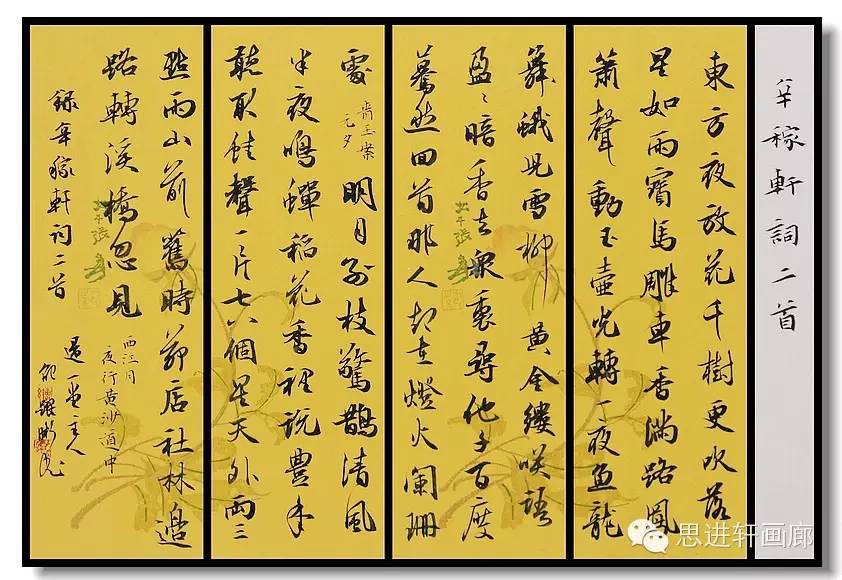 辛稼軒詞二首
東方夜放花千樹更吹落
星如雨寶馬雕車香滿路鳳
簫聲動玉壺光轉一夜魚龍
舞蛾兒雪柳黃金縷咲語
盈〻暗香去眾裏尋他千百度
驀然回首那人却在燈火闌珊
處
青玉案
元夕
明月別枝驚鵲清風
半夜鳴蟬稻花香裡說豐年
聽取蛙聲一片七八個星天外兩三
點雨山前舊時茅店社林邊
路轉溪橋忽見
西江月
夜行黃沙道中
錄辛稼軒詞二首
一堂主人
思进轩画廊